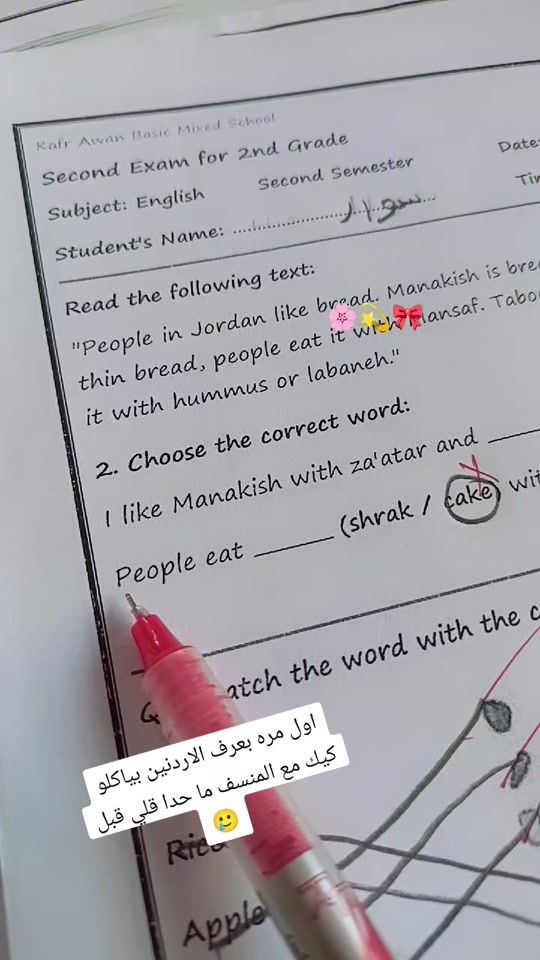 Kafr Awan Basic Mixed School
Second Exam for 2nd Grade
Date:
Subject: English
Second Semester
Student's Name:
Read the following text:
"People in Jordan like bread. Manakish is
thin bread, people eat it with Mansaf.
it with hummus or labaneh."
2. Choose the correct word:
I like Manakish with za'atar and
People eat ______ (shrak / cake)
the word with the
اول مره بعرف الاردنين بياكلو
كيك مع المنسف ما حدا قلي قبل
🥲
Apple